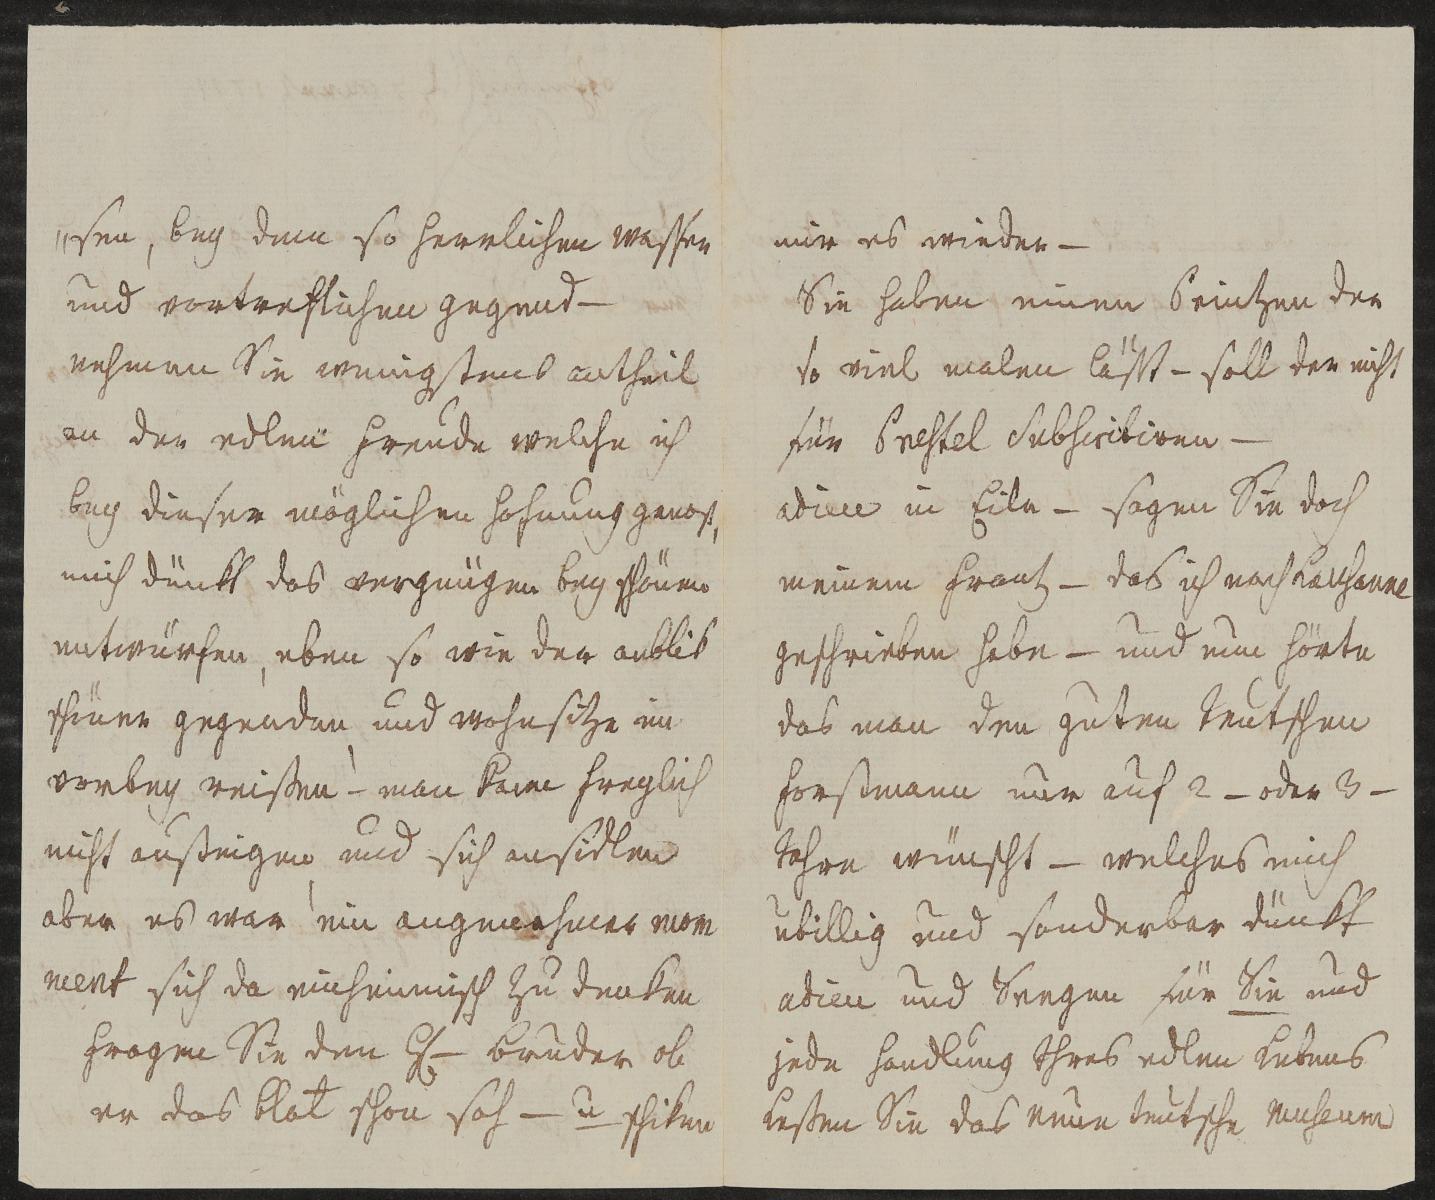 "sen, bey dem so herrlichen wasser
und vortreflichen gegend –
nehmen Sie wenigstens antheil
an der edlen freude welche ich
bey dieser möglichen hofnung genoß,
mich dünkt das vergnügen bey schönen
entwürfen, eben so wie der anblik
schöner gegenden und wohnsitze im
vorbey reißen – man kann freylich
nicht außteigen und sich ansidlen
aber es war ein angenehmer mom
ment sich da einheimisch zu denken
fragen Sie den H– bruder ob
er das blat schon sah – u schiken
mir es wieder –
Sie haben einen Printzen der
so viel malen läßt – soll der nicht
für Prestel Subscribiren –
adieu in Eile – sagen Sie doch
meinem Frantz – das ich nach Lausanne
geschrieben habe – und nun hörte
das man den guten teutschen
forstmann nur auf 2 – oder 3 –
Jahre wünscht – welches mich
ubillig und sonderbar dünkt
adieu und Seegen für Sie und
jede handlung Ihres edlen Lebens
Leßen Sie das neue teutsche Museum